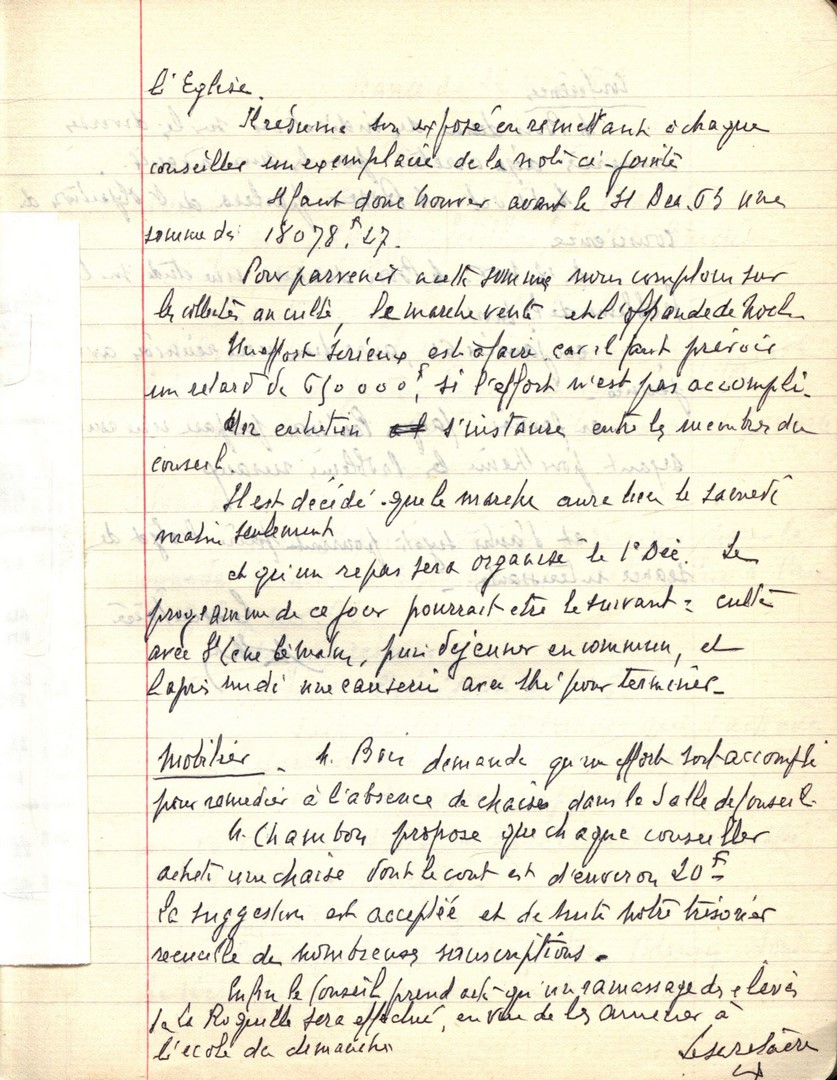 l'Eglise.
Il résume son exposé en remettant à chaque
conseiller un exemplaire de la note ci-jointe
Il faut donc trouver avant le 31 Dec. 63 une
somme de 18078.F27.
Pour parvenir a cette somme nous comptons sur
les collectes au culte, le marche vente et l'offrande de Noel.
Un effort sérieux est a faire car il faut prévoir
un retard de 650000F, si l'effort n'est pas accompli.
Un entretien s'instaure entre les membres du
conseil
Il est décidé que le marche aura lieu le samedi
matin seulement
et qu'un repas sera organisé le 1e Déc. Le
programme de ce jour pourrait etre le suivant : culte
avec Ste Cene le matin, puis déjeuner en commun, et
l'après midi une causerie avec thé pour terminer.
Mobilier. M. Bois demande qu'un effort soit accompli
pour remedier à l'absence de chaises dans la Salle de Conseil.
M. Chambon propose que chaque conseiller
achete une chaise dont le cout est d'environ 20F
La suggestion est acceptée et de suite notre trésorier
recueille de nombreuses souscriptions.
Enfin le Conseil prend acte qu'un ramassage des elèves
de la Roquille sera effectué, en vue de les amener à
l'ecole du dimanche
Le secretaire